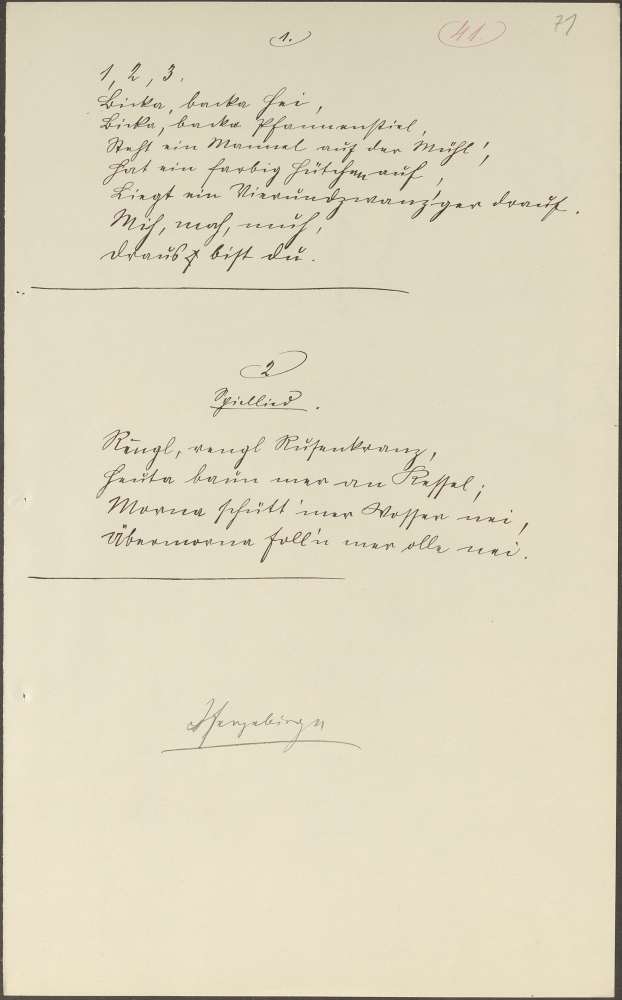 1.
41.
71
1, 2, 3.
Bicka, backa hei,
Bicka, backa Pfannenstiel,
Steht ein Mannel auf der Mühl',
Hat ein farbig Hütchen auf,
Liegt ein Vierundzwanz'ger drauf.
Mih, mah, muh,
Draus bist du.
2
Spiellied.
Ringl, rengl Rusenkranz,
Heuta baun mer an Kessel;
Morna schütt' mer Wosser nei,
Übermorna foll'n mer olle nei.
Isergebirge